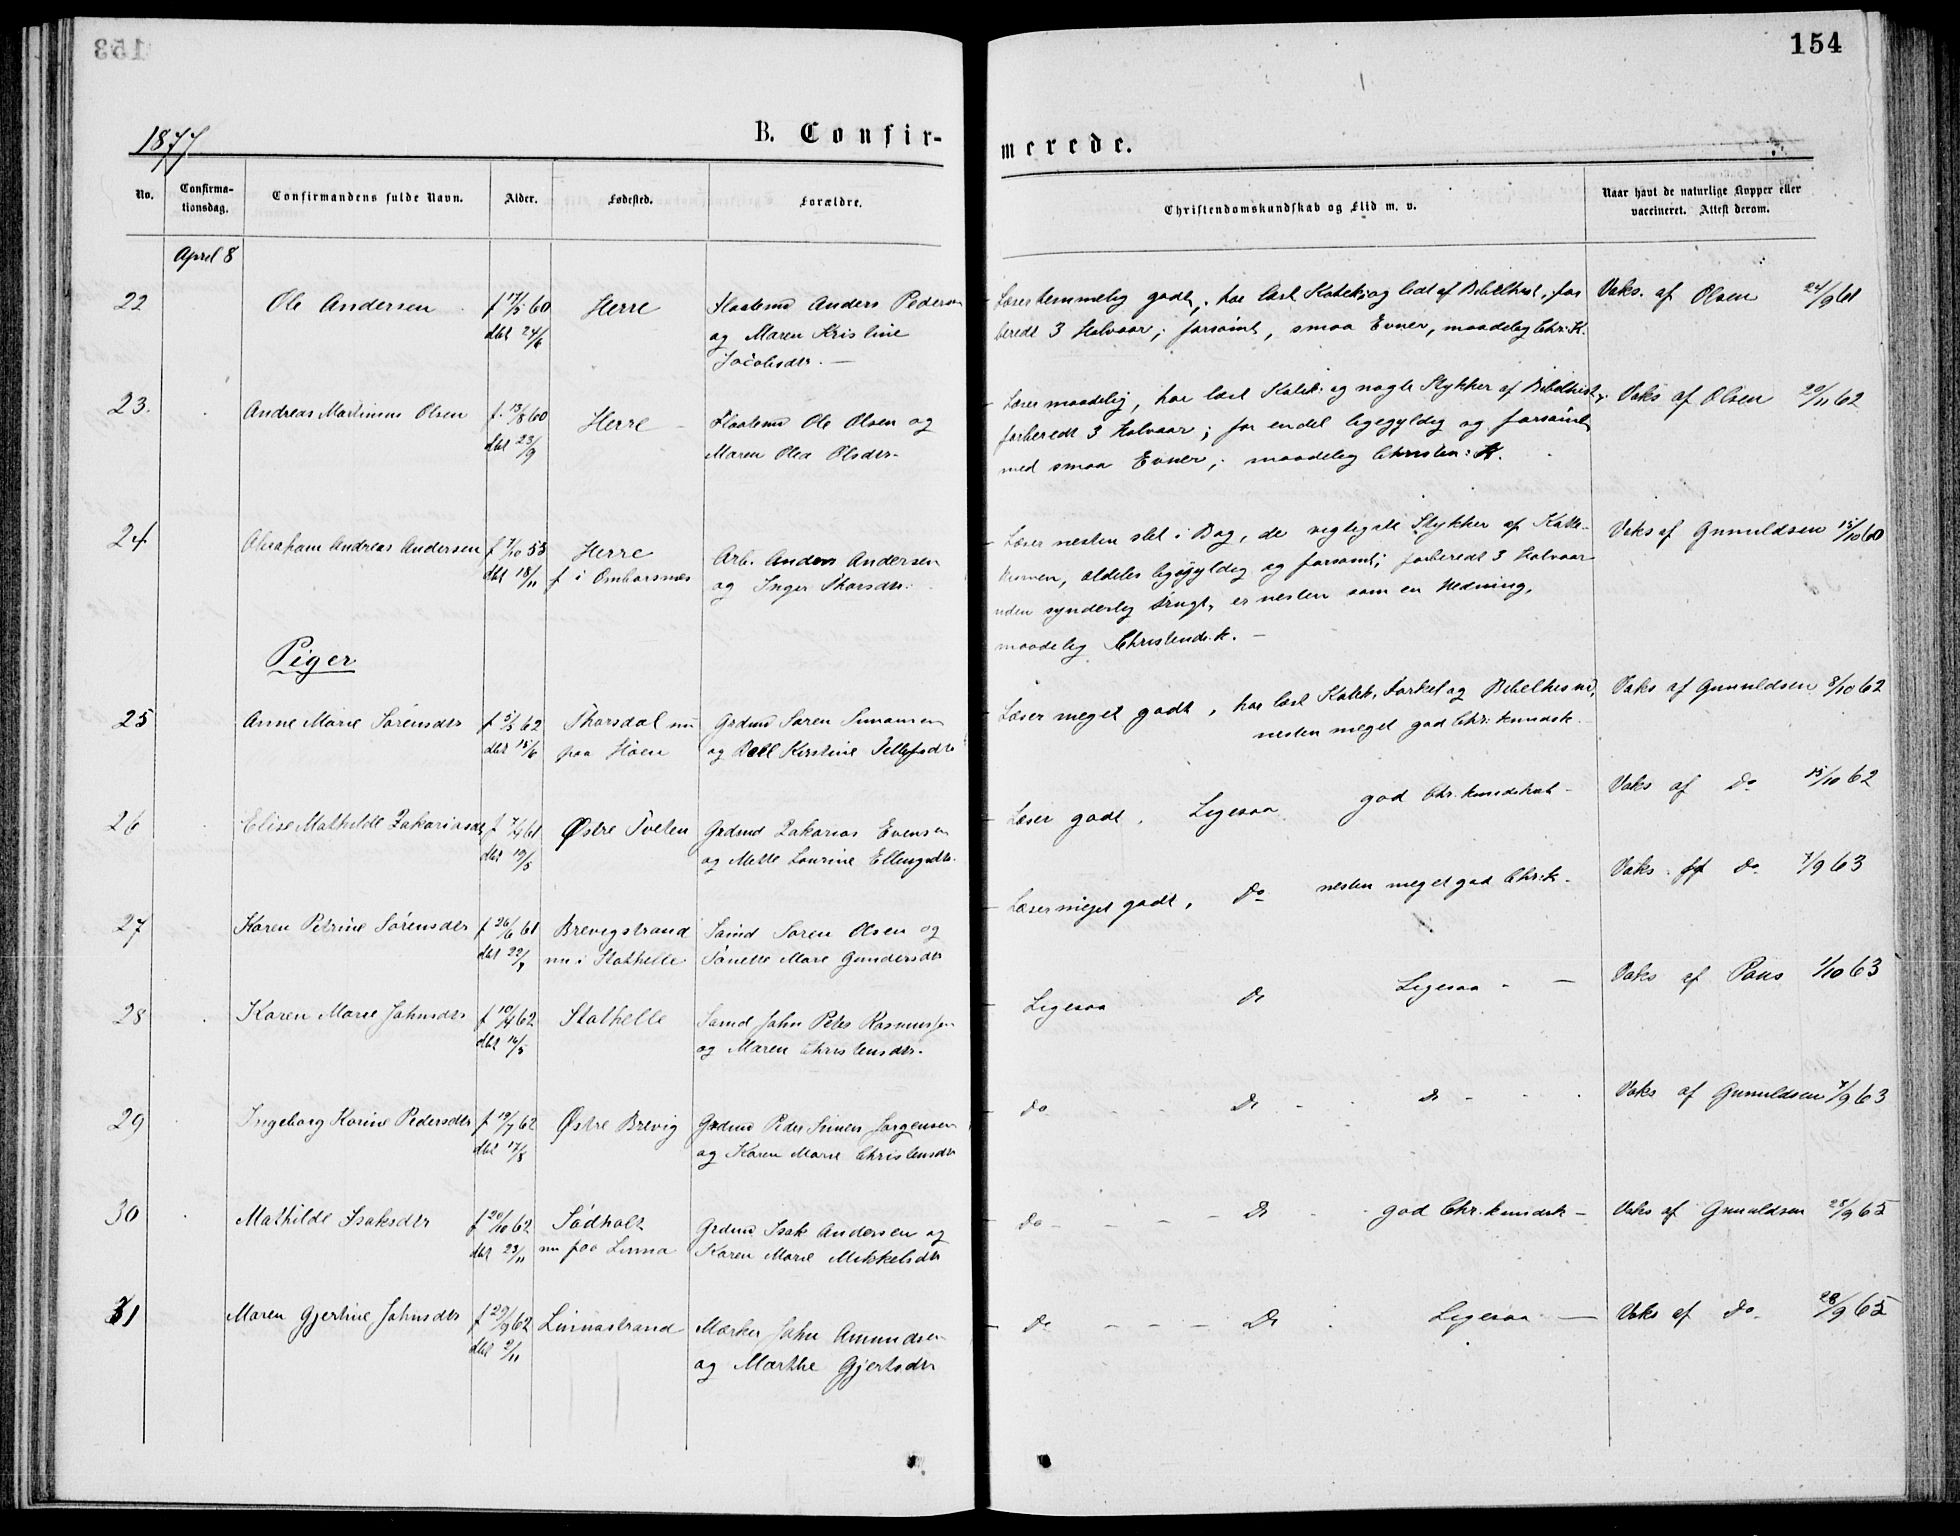 153
154
1877
B. Confir-
merede.
No.
Confirma-
tionsdag.
Confirmandens fulde Navn.
Alder.
Fødested.
Forældre.
Christendomskundskab og Flid m. v.
Naar havt de naturlige Kopper eller
vaccineret. Attest derom.
April 8
22 Ole Andersen f 17/5 60 Herre Anders Pedersen
døbt 24/6 og Maren Kristine
Jacobsdtr. —
Læser temmelig godt, har læst Katek. og lidt af Bibelhist., for
beredt 3 Halvaar; forsømt, smaa Evner, maadelig Chr. K.
Vaks. af Olsen 24/9 61
23. Andreas Martinius Olsen f. 13/8 60 Herre Ole Olsen og
døbt 23/9 Maren Olea Olsdtr.
Læser maadelig, har læst Katek. og nogle Stykker af Bibelhist.,
forberedt 3 Halvaar; for endel ligegyldig og forsømt
med smaa Evner; maadelig Christen: K.
Vaks af Olsen 20/11 62
24 Abraham Andreas Andersen f 7/10 55 Herre Arb. Anders Andersen
døbt 18/11 f i Omborsnæs og Inger Thorsdtr.
Læser nesten slet i Bog, de vigtigste Stykker af Kate-
kismen, aldeles ligegyldig og forsømt; forberedt 3 Halvaar
uden synderlig Frugt, er nesten som en Hedning,
maadelig Christends. k. —
Vaks af Gunuldsen 15/10 60
Piger
25 Anne Marie Sørensdtr f 5/5 62 Thorsdal nu Grdmd Søren Simonsen
døbt 15/6 paa Høen og Kirstine Tellefsdtr
Læser meget godt, har læst Katek., Forkl og Bibelhist,
nesten meget god Chr. kundsk.
Vaks af Gunuldsen 8/10 62
26 Elise Mathilde Zakariasdtr f 7/4 61 Østre Tveten Grdmd Zakarias Evensen
døbt 19/5 og Mette Lourine Ellingsdtr.
Læser godt, Ligesaa god Chr. kundskab -
Vaks af do 15/10 62
27 Karen Petrine Sørensdtr f 26/6 61 Brevigstrand Sømd Søren Olsen og
døbt 22/9 nu i Stathelle Tonette Marie Gundersdtr
Læser meget godt, do nesten meget god Chr. k.
Vaks af do 7/9 63
28 Karen Marie Jahnsdtr f 10/4 62 Stathelle Sømd Jahn Peter Rasmussen
døbt 16/5 og Maren Christensdtr.
Ligesaa do Ligesaa - —
Vaks af Paus 1/10 63
29 Ingeborg Karine Pedersdtr f 19/7 62 Østre Brevig Grdmd Peder Simen Jørgensen
døbt 17/8 og Karen Marie Christensdtr
do do do
Vaks af Gunuldsen 7/9 63
30 Mathilde Isaksdtr f 20/10 62 Sødholt Grdmd Isak Andersen og
døbt 23/11 nu paa Linna Karen Marie Mikkelsdtr
do do god Chr. kundsk —
Vaks af Gunuldsen 28/9 65
31 Maren Gjertine Jahnsdtr f 29/9 62 Linnastrand Jahn Amundsen
døbt 2/11 og Marthe Gjertsdtr
do do Ligesaa —
Vaks af do 28/9 65